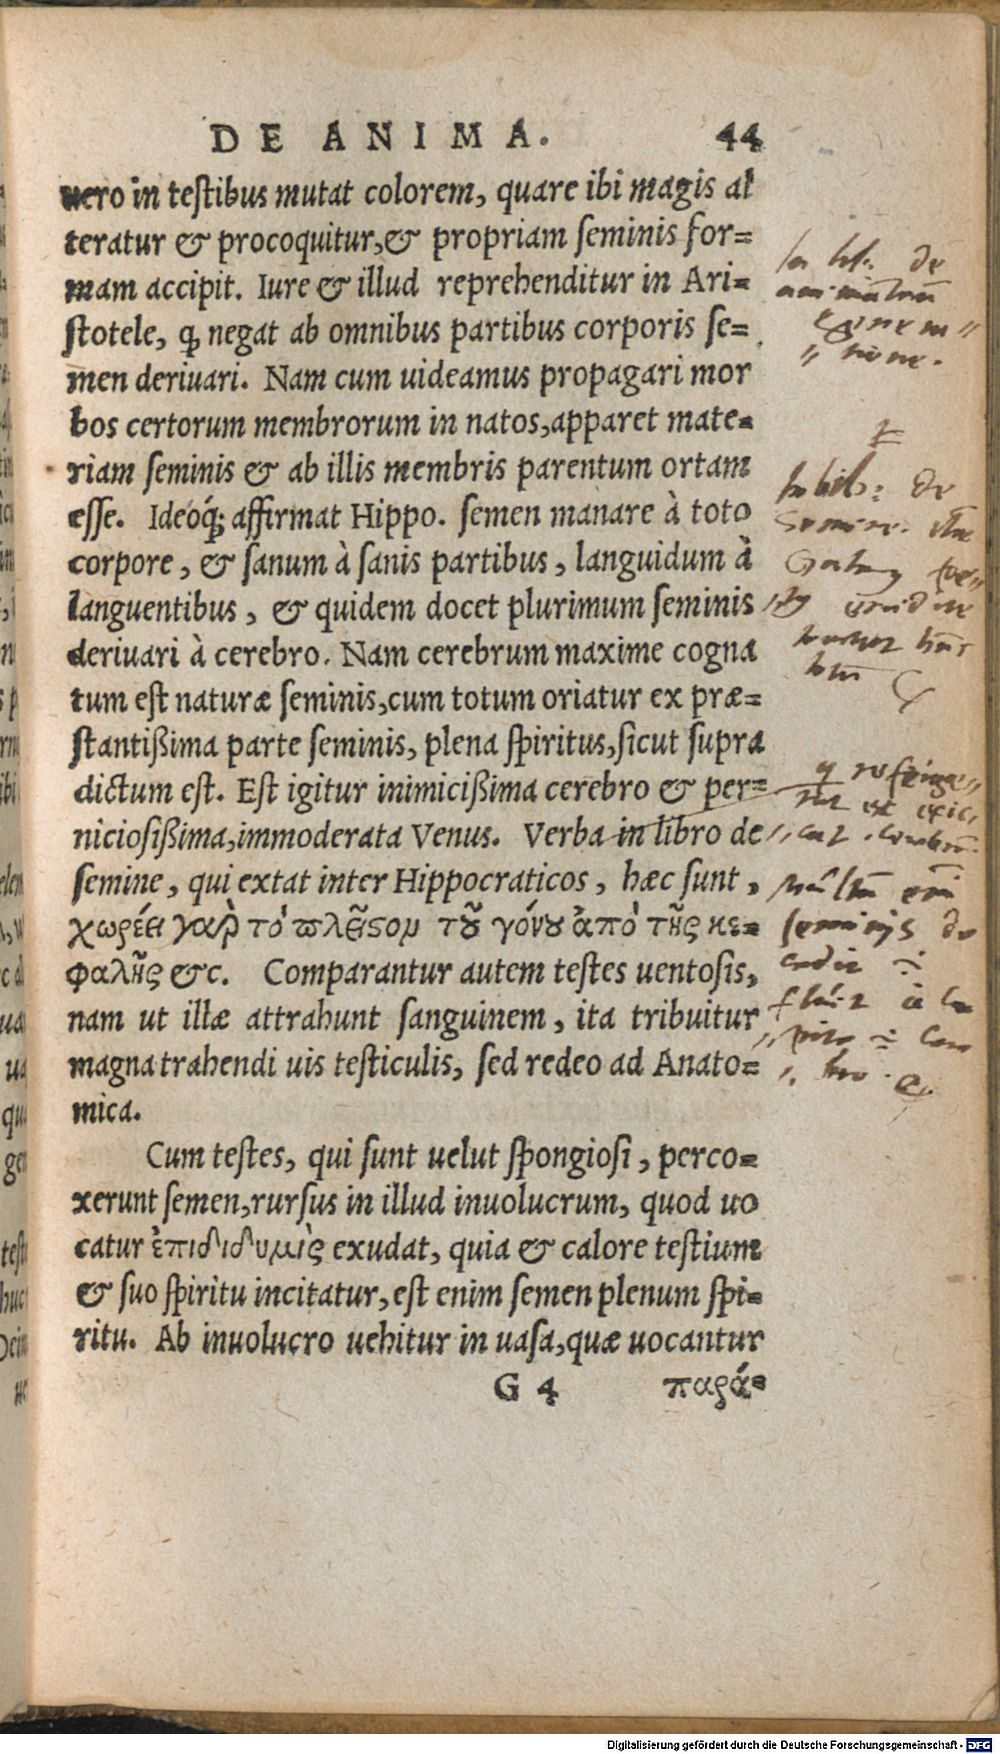 DE ANIMA. 44
uero in teſtibus mutat colorem, quare ibi magis al
teratur & procoquitur,& propriam ſeminis for=
mam accipit. Iure & illud reprehenditur in Ari=
ſtotele, ꝙ negat ab omnibus partibus corporis ſe=
men deriuari. Nam cum uideamus propagari mor
bos certorum membrorum in natos,apparet mate=
riam ſeminis & ab illis membris parentum ortam
eſſe. Ideoq́ꝫ affirmat Hippo. ſemen manare à toto
corpore, & ſanum à ſanis partibus, languidum à
languentibus, & quidem docet plurimum ſeminis
deriuari à cerebro. Nam cerebrum maxime cogna
tum eſt naturæ ſeminis,cum totum oriatur ex præ=
ſtantißima parte ſeminis, plena ſpiritus,ſicut ſupra
dictum eſt. Eſt igitur inimicißima cerebro & per=
nicioſißima,immoderata Venus. Verba in libro de
ſemine, qui extat inter Hippocraticos, hæc ſunt,
χωρέει γὰρ τὸ πλεῖστον τοῦ γόνου ἀπὸ τῆς κε=
φαλῆς &c. Comparantur autem teſtes uentoſis,
nam ut illæ attrahunt ſanguinem, ita tribuitur
magna trahendi uis teſticulis, ſed redeo ad Anato=
mica.
Cum teſtes, qui ſunt uelut ſpongioſi, perco=
xerunt ſemen,rurſus in illud inuolucrum, quod uo
catur ἐπιδιδυμὶς exudat, quia & calore teſtium
& ſuo ſpiritu incitatur,eſt enim ſemen plenum ſpi=
ritu. Ab inuolucro uehitur in uaſa,quæ uocantur
G 4 παρά=
de
de
Digitalisierung gefördert durch die Deutsche Forschungsgemeinschaft - DFG